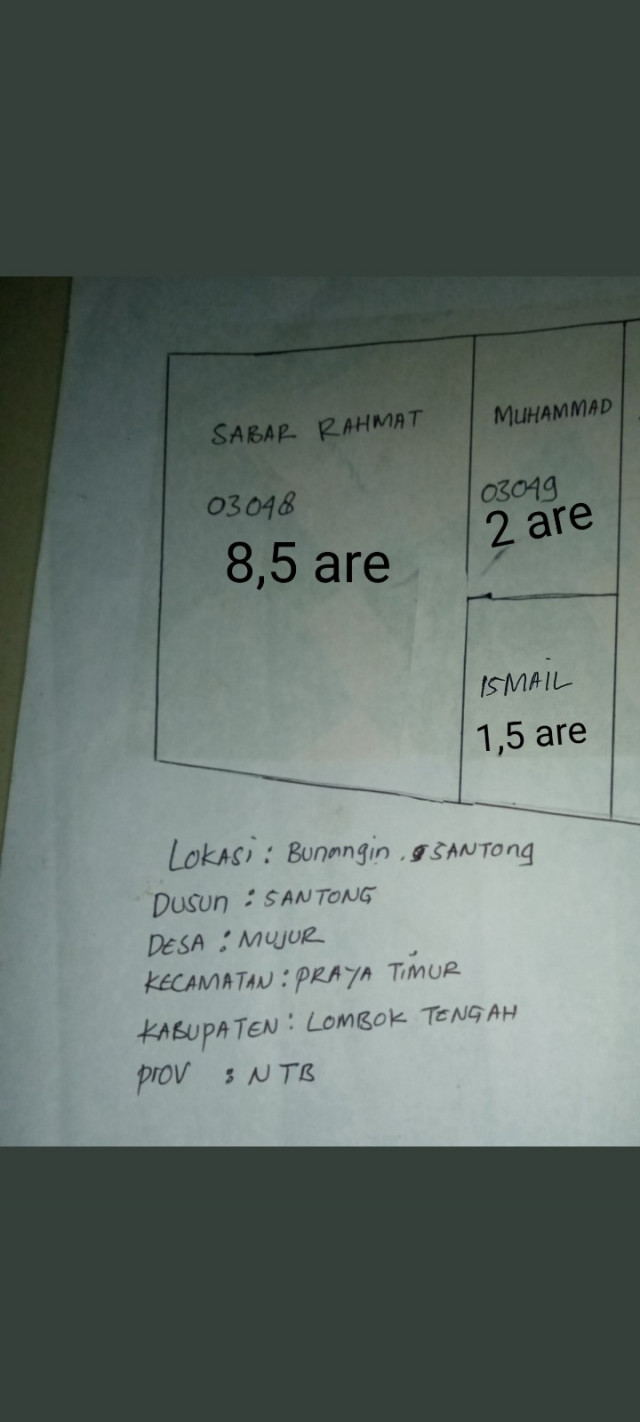 SABAR RAHMAT
03048
8,5 are
MUHAMMAD
03049
2 are
ISMAIL
1,5 are
LOKASI : Bunangin . SANTONG
DUSUN : SANTONG
DESA : MUJUR
KECAMATAN : PRAYA TIMUR
KABUPATEN : LOMBOK TENGAH
PROV : NTB